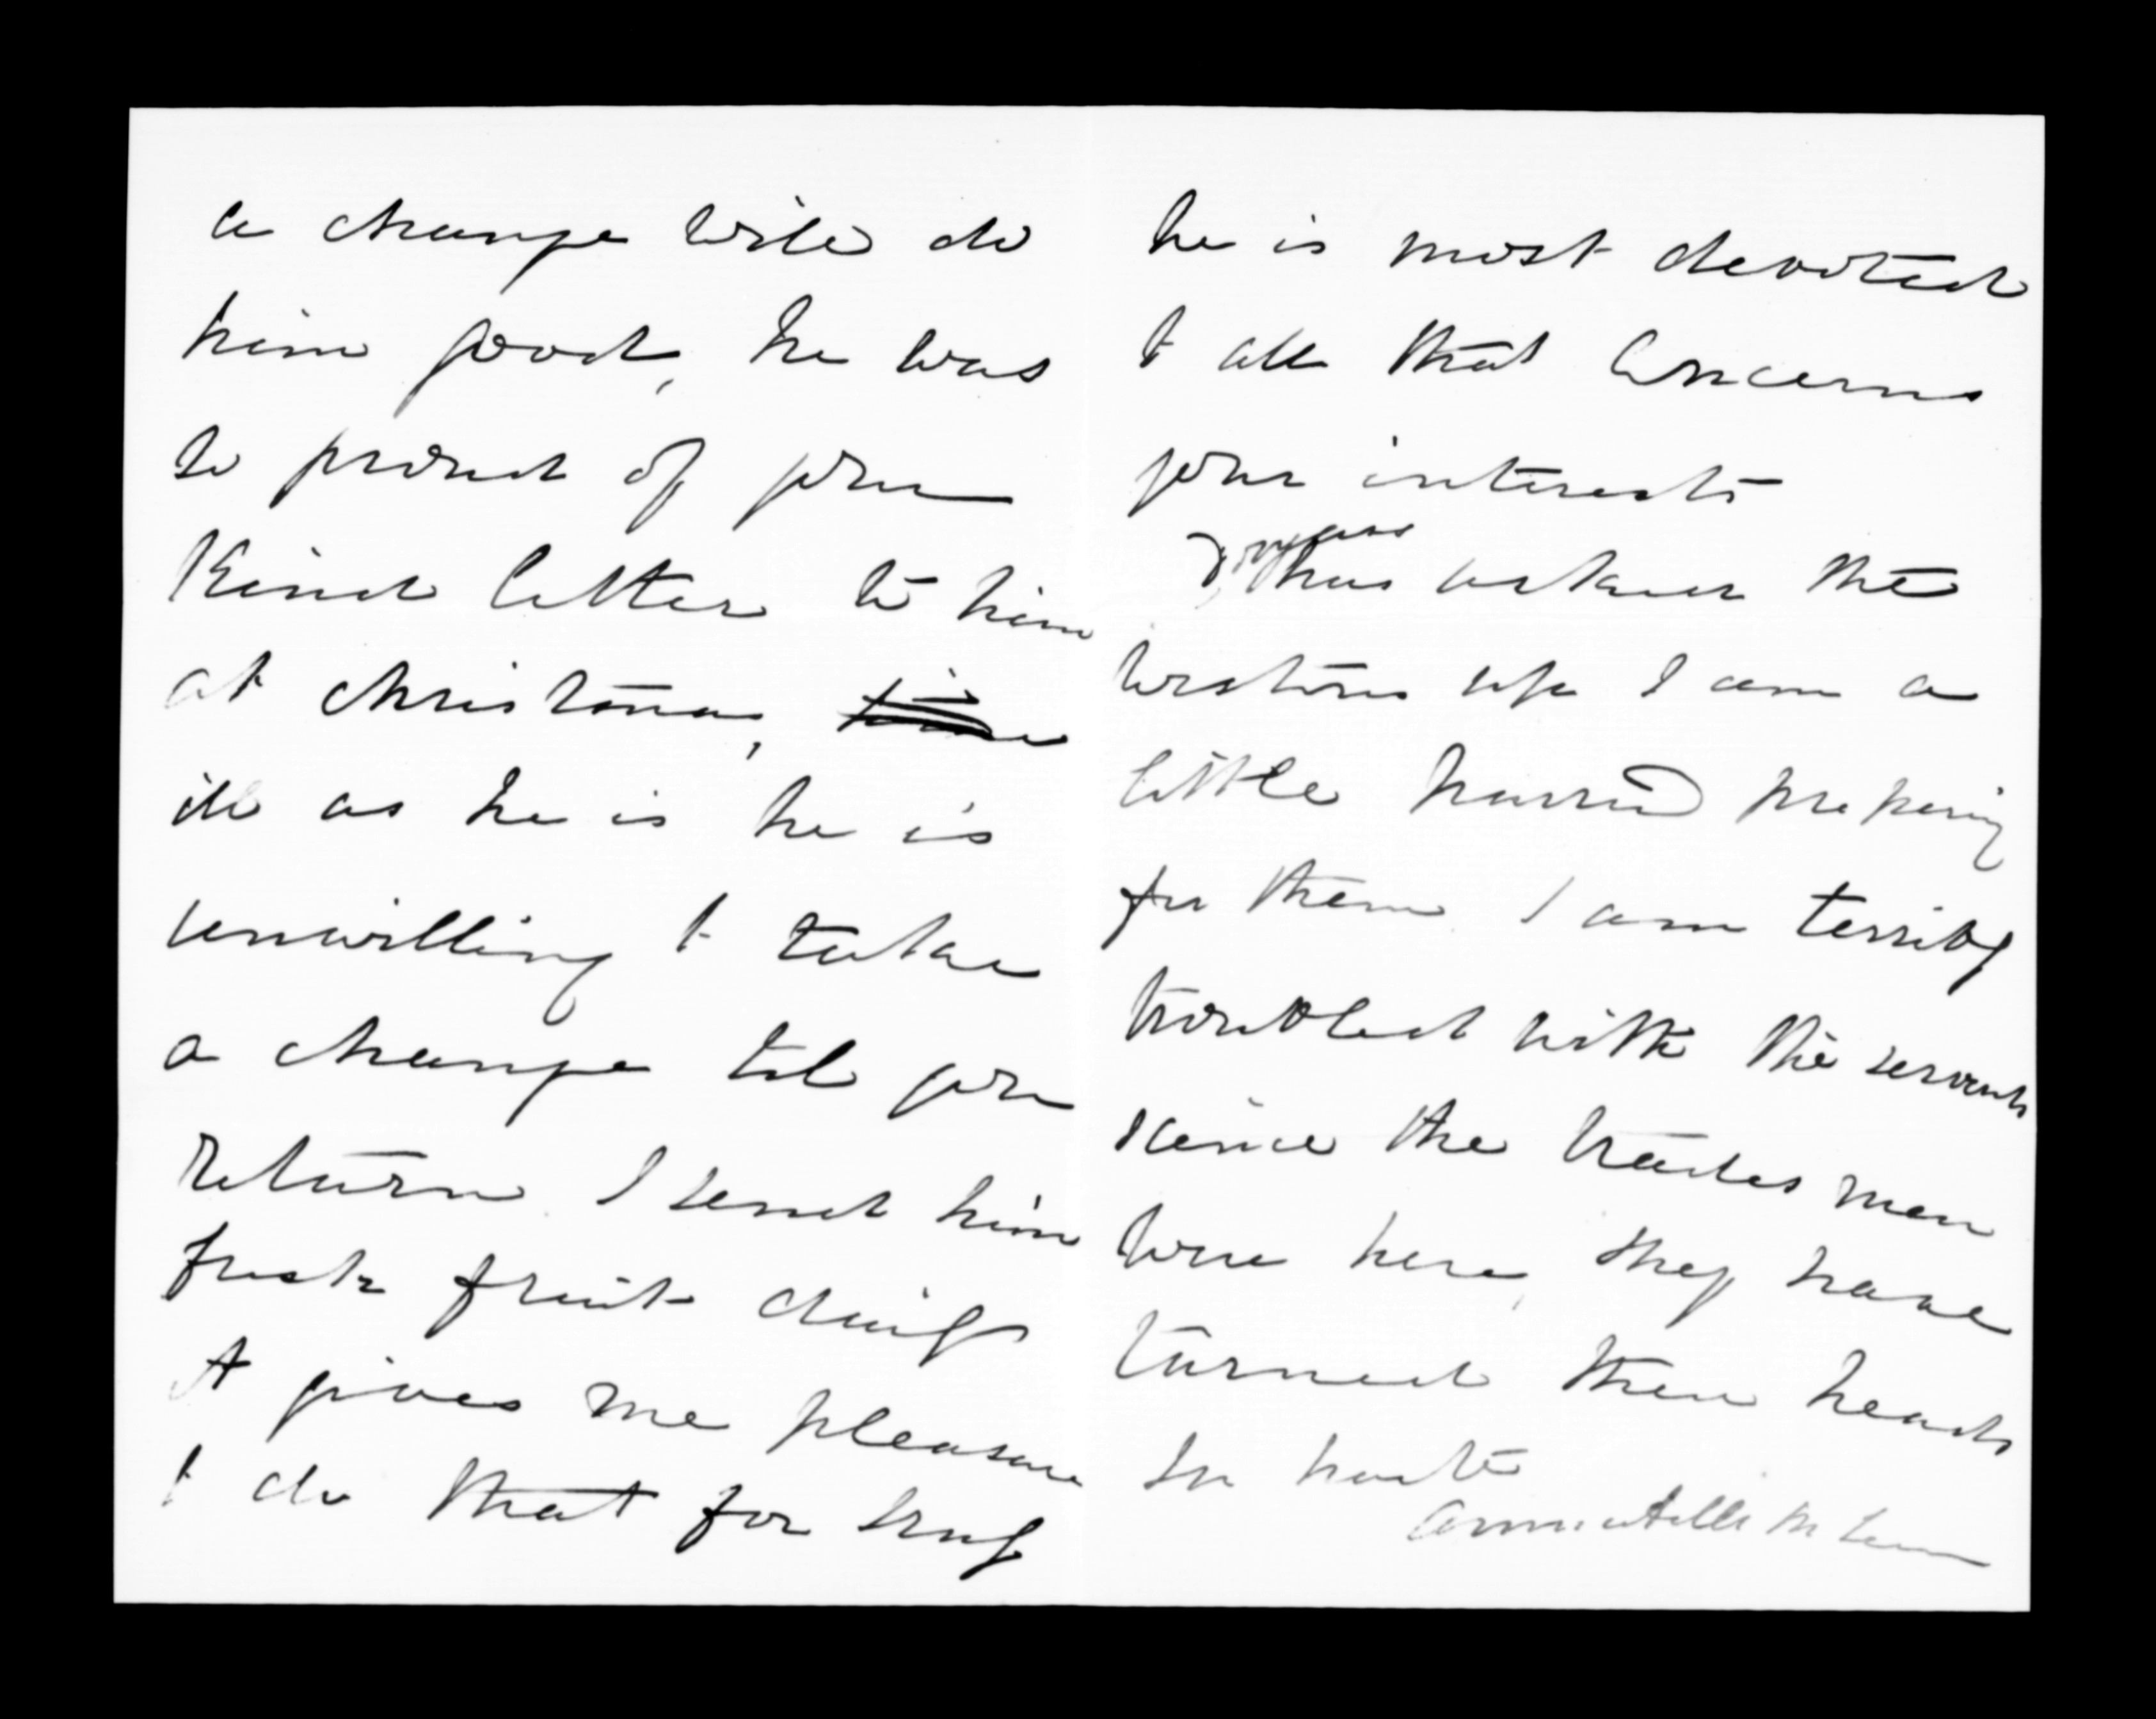 a change will do
him good, he was
so proud of your
Kind letter to him
at christmas,
ill as he is he is
unwilling to take
a change til you
return I send him
fresh fruit daily
It gives me pleasure
to do that for Luxf
he is most devoted
to all that concerns
your interests
has asked the
up I am a
little hurried preparing
for them I am terribly
troubled with the servants
since the trades men
were here, they have
turned their heads
In haste
McLean